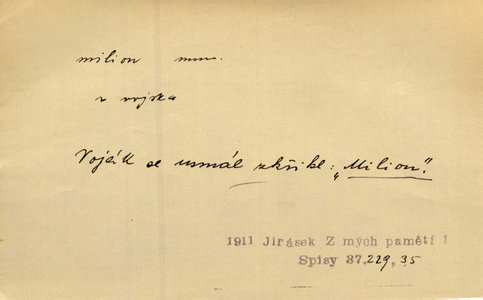 milion
vojska
Voják se usmál zkřikl: „Milion".
1911 Jirásek Z mých pamětí 1
Spisy 37.229,35